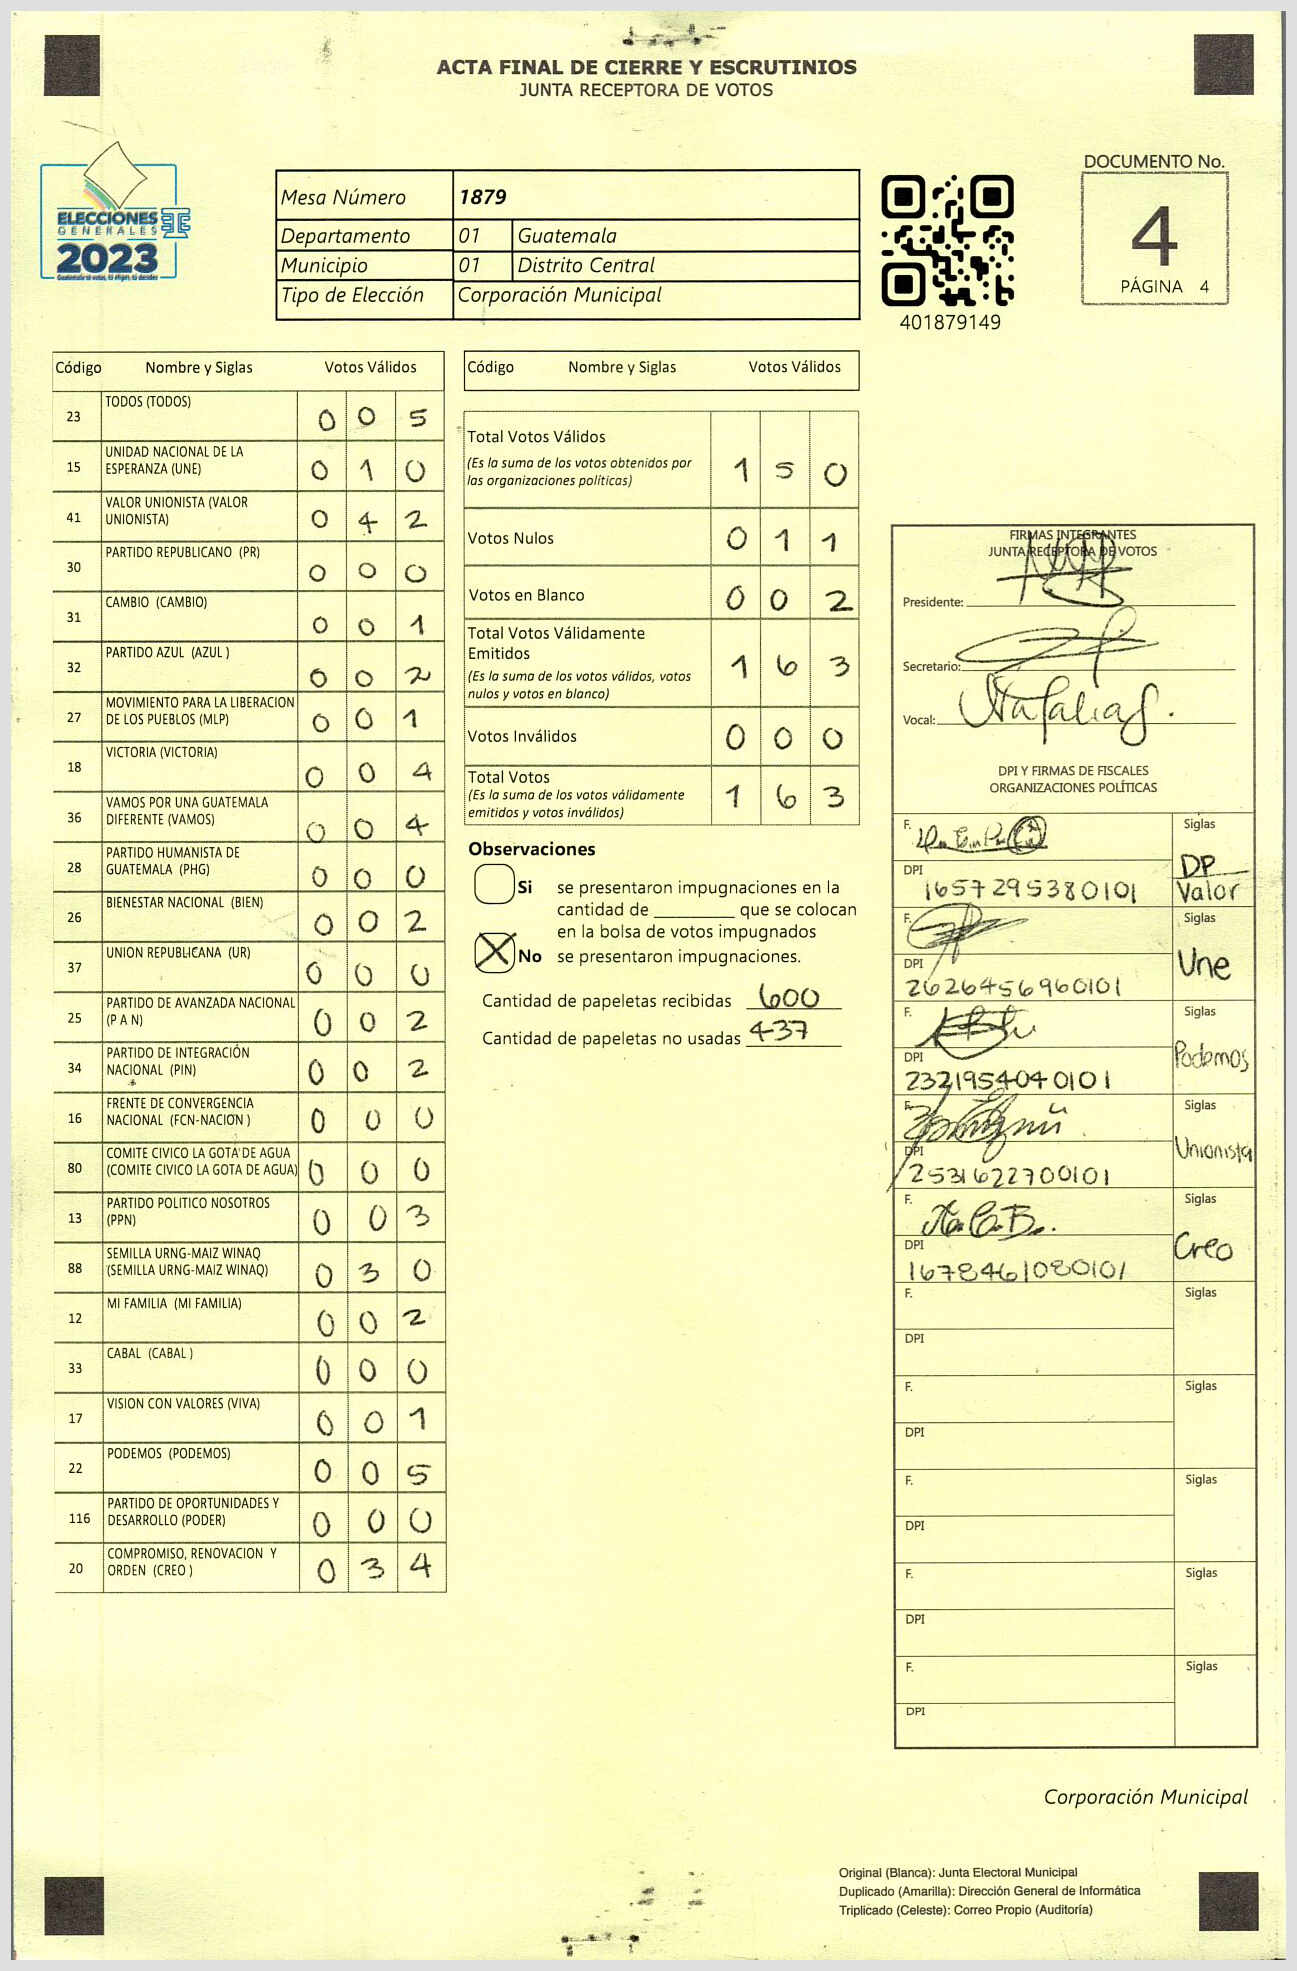 ACTA FINAL DE CIERRE Y ESCRUTINIOS
JUNTA RECEPTORA DE VOTOS
ELECCIONES
GENERALES
2023
Mesa Número 1879
Departamento 01 Guatemala
Municipio 01 Distrito Central
Tipo de Elección Corporación Municipal
401879149
DOCUMENTO No.
4
PÁGINA 4
Código Nombre y Siglas Votos Válidos
23 TODOS (TODOS) 0 0 5
15 UNIDAD NACIONAL DE LA
ESPERANZA (UNE) 0 1 0
41 VALOR UNIONISTA (VALOR
UNIONISTA) 0 4 2
30 PARTIDO REPUBLICANO (PR) 0 0 0
31 CAMBIO (CAMBIO) 0 0 1
32 PARTIDO AZUL (AZUL ) 0 0 2
27 MOVIMIENTO PARA LA LIBERACION
DE LOS PUEBLOS (MLP) 0 0 1
18 VICTORIA (VICTORIA) 0 0 4
36 VAMOS POR UNA GUATEMALA
DIFERENTE (VAMOS) 0 0 4
28 PARTIDO HUMANISTA DE
GUATEMALA (PHG) 0 0 0
26 BIENESTAR NACIONAL (BIEN) 0 0 2
37 UNION REPUBLICANA (UR) 0 0 0
25 PARTIDO DE AVANZADA NACIONAL
(P A N) 0 0 2
34 PARTIDO DE INTEGRACIÓN
NACIONAL (PIN) 0 0 2
16 FRENTE DE CONVERGENCIA
NACIONAL (FCN-NACION ) 0 0 0
80 COMITE CIVICO LA GOTA DE AGUA
(COMITE CIVICO LA GOTA DE AGUA) 0 0 0
13 PARTIDO POLITICO NOSOTROS
(PPN) 0 0 3
88 SEMILLA URNG-MAIZ WINAQ
(SEMILLA URNG-MAIZ WINAQ) 0 3 0
12 MI FAMILIA (MI FAMILIA) 0 0 2
33 CABAL (CABAL ) 0 0 0
17 VISION CON VALORES (VIVA) 0 0 1
22 PODEMOS (PODEMOS) 0 0 5
116 PARTIDO DE OPORTUNIDADES Y
DESARROLLO (PODER) 0 0 0
20 COMPROMISO, RENOVACION Y
ORDEN (CREO ) 0 3 4
Código Nombre y Siglas Votos Válidos
Total Votos Válidos
(Es la suma de los votos obtenidos por
las organizaciones políticas) 1 5 0
Votos Nulos 0 1 1
Votos en Blanco 0 0 2
Total Votos Válidamente
Emitidos
(Es la suma de los votos válidos, votos
nulos y votos en blanco) 1 6 3
Votos Inválidos 0 0 0
Total Votos
(Es la suma de los votos válidamente
emitidos y votos inválidos) 1 6 3
Observaciones
Si se presentaron impugnaciones en la
cantidad de ________ que se colocan
en la bolsa de votos impugnados
X No se presentaron impugnaciones.
Cantidad de papeletas recibidas 600
Cantidad de papeletas no usadas 437
FIRMAS INTEGRANTES
JUNTA RECEPTORA DE VOTOS
Presidente:
Secretario:
Vocal:
DPI Y FIRMAS DE FISCALES
ORGANIZACIONES POLÍTICAS
F. Siglas
DP
DPI 1657295380101 Valor
F. Siglas
Une
DPI 2626456960101
F. Siglas
Podemos
DPI 2321954040101
F. Siglas
Unionista
DPI 2531622700101
F. Siglas
Creo
DPI 1678461080101
F. Siglas
DPI
F. Siglas
DPI
F. Siglas
DPI
F. Siglas
DPI
F. Siglas
DPI
Corporación Municipal
Original (Blanca): Junta Electoral Municipal
Duplicado (Amarilla): Dirección General de Informática
Triplicado (Celeste): Correo Propio (Auditoría)